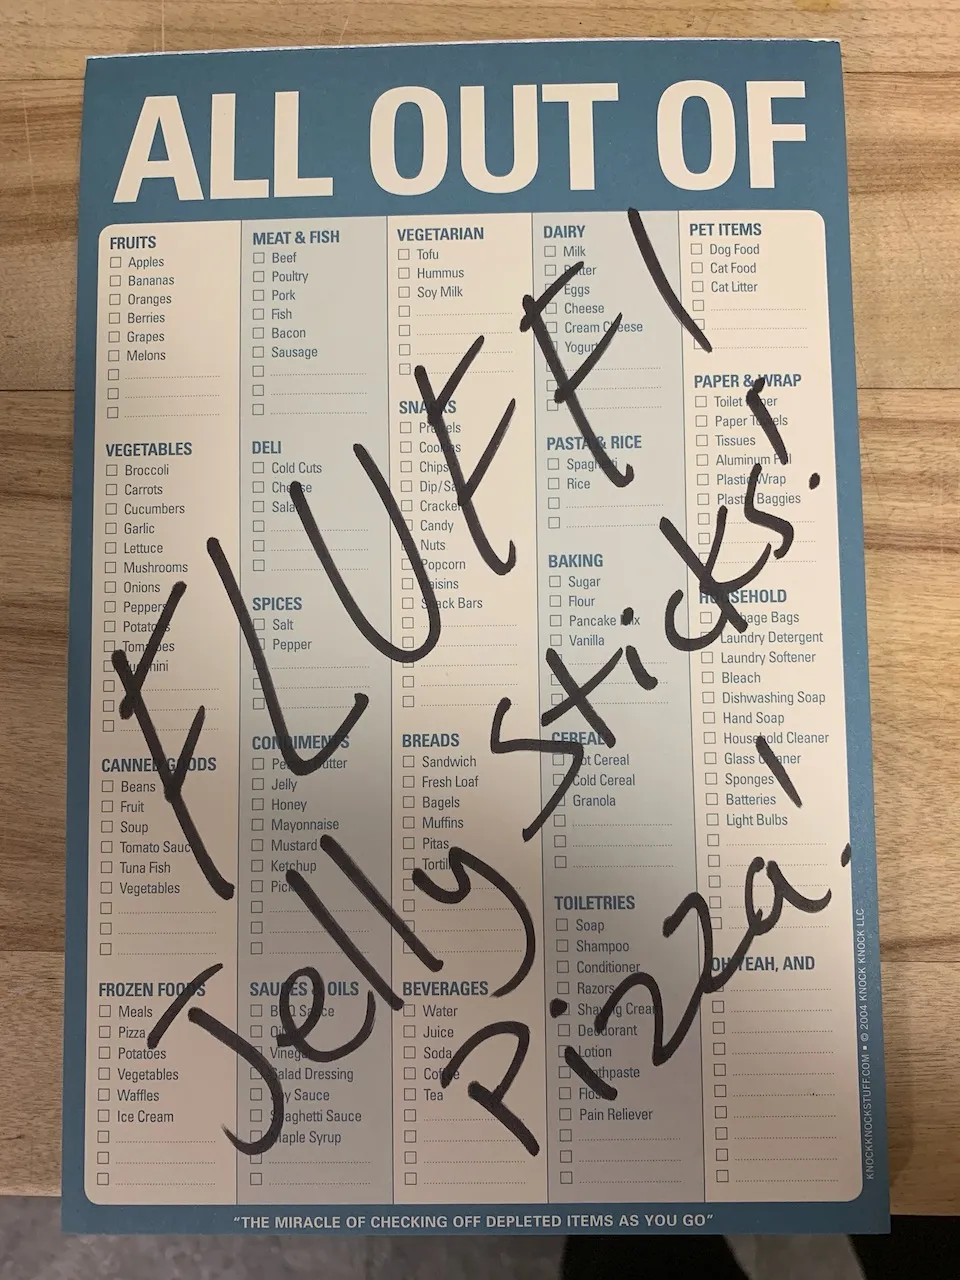 ALL OUT OF
FRUITS
Apples
Bananas
Oranges
Berries
Grapes
Melons
VEGETABLES
Broccoli
Carrots
Cucumbers
Garlic
Lettuce
Mushrooms
Onions
Peppers
Potatoes
Tomatoes
Zucchini
CANNED GOODS
Beans
Fruit
Soup
Tomato Sauce
Tuna Fish
Vegetables
FROZEN FOODS
Meals
Pizza
Potatoes
Vegetables
Waffles
Ice Cream
MEAT & FISH
Beef
Poultry
Pork
Fish
Bacon
Sausage
DELI
Cold Cuts
Cheese
Salads
SPICES
Salt
Pepper
CONDIMENTS
Peanut Butter
Jelly
Honey
Mayonnaise
Mustard
Ketchup
Pickles
SAUCES & OILS
BBQ Sauce
Oil
Vinegar
Salad Dressing
Soy Sauce
Spaghetti Sauce
Maple Syrup
VEGETARIAN
Tofu
Hummus
Soy Milk
SNACKS
Pretzels
Cookies
Chips
Dip/Salsa
Crackers
Candy
Nuts
Popcorn
Raisins
Snack Bars
BREADS
Sandwich
Fresh Loaf
Bagels
Muffins
Pitas
Tortillas
BEVERAGES
Water
Juice
Soda
Coffee
Tea
DAIRY
Milk
Butter
Eggs
Cheese
Cream Cheese
Yogurt
PASTA & RICE
Spaghetti
Rice
BAKING
Sugar
Flour
Pancake Mix
Vanilla
CEREAL
Hot Cereal
Cold Cereal
Granola
TOILETRIES
Soap
Shampoo
Conditioner
Razors
Shaving Cream
Deodorant
Lotion
Toothpaste
Floss
Pain Reliever
PET ITEMS
Dog Food
Cat Food
Cat Litter
PAPER & WRAP
Toilet Paper
Paper Towels
Tissues
Aluminum Foil
Plastic Wrap
Plastic Baggies
HOUSEHOLD
Garbage Bags
Laundry Detergent
Laundry Softener
Bleach
Dishwashing Soap
Hand Soap
Household Cleaner
Glass Cleaner
Sponges
Batteries
Light Bulbs
OH YEAH, AND
FLUFF!
Jelly Sticks!
Pizza!
"THE MIRACLE OF CHECKING OFF DEPLETED ITEMS AS YOU GO"
KNOCKKNOCKSTUFF.COM • © 2004 KNOCK KNOCK LLC